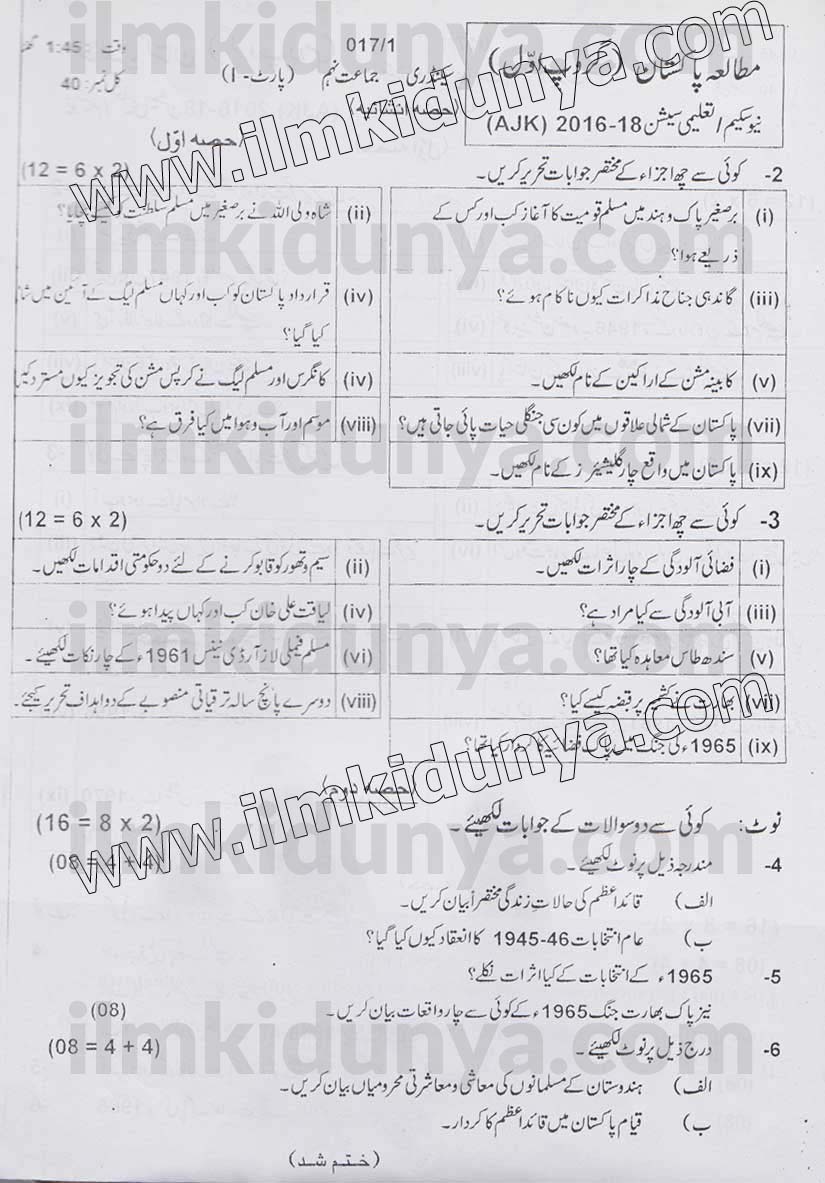 مطالعہ پاکستان (گروپ اوّل)
نیو سکیم / تعلیمی سیشن 18-2016 (AJK)
017/1
سیکنڈری جماعت نہم (پارٹ - I)
(حصہ انشائیہ)
(حصہ اوّل)
وقت 1:45 گھ
کل نمبر: 40
2- کوئی سے چھ اجزاء کے مختصر جوابات تحریر کریں۔ (12 = 6 x 2)
(i) برصغیر پاک و ہند میں مسلم قومیت کا آغاز کب اور کس کے
ذریعے ہوا؟
(ii) شاہ ولی اللہ نے برصغیر میں مسلم سلطنت کو کیسے بچایا؟
(iii) گاندھی جناح مذاکرات کیوں ناکام ہوئے؟
(iv) قرارداد پاکستان کو کب اور کہاں مسلم لیگ کے آئین میں شا
کیا گیا؟
(v) کابینہ مشن کے اراکین کے نام لکھیں۔
(iv) کانگرس اور مسلم لیگ نے کرپس مشن کی تجویز کیوں مسترد کیں
(vii) پاکستان کے شمالی علاقوں میں کون سی جنگلی حیات پائی جاتی ہیں؟
(viii) موسم اور آب و ہوا میں کیا فرق ہے؟
(ix) پاکستان میں واقع چار گلیشیئرز کے نام لکھیں۔
3- کوئی سے چھ اجزاء کے مختصر جوابات تحریر کریں۔ (12 = 6 x 2)
(i) فضائی آلودگی کے چار اثرات لکھیں۔
(ii) سیم و تھور کو قابو کرنے کے لئے دو حکومتی اقدامات لکھیں۔
(iii) آبی آلودگی سے کیا مراد ہے؟
(iv) لیاقت علی خان کب اور کہاں پیدا ہوئے؟
(v) سندھ طاس معاہدہ کیا تھا؟
(vi) مسلم فیملی لاز آرڈی نینس 1961ء کے چار نکات لکھیئے۔
(vii) بھارت نے کشمیر پر قبضہ کیسے کیا؟
(viii) دوسرے پانچ سالہ ترقیاتی منصوبے کے دو اہداف تحریر کیجئے۔
(ix) 1965ء کی جنگ میں پاک فضائیہ کا کردار کیا تھا؟
(حصہ دوم)
نوٹ: کوئی سے دو سوالات کے جوابات لکھیئے۔ (16 = 8 x 2)
4- مندرجہ ذیل پر نوٹ لکھیئے۔ (08 = 4 + 4)
الف) قائداعظم کی حالاتِ زندگی مختصراً بیان کریں۔
ب) عام انتخابات 46-1945 کا انعقاد کیوں کیا گیا؟
5- 1965ء کے انتخابات کے کیا اثرات نکلے؟
نیز پاک بھارت جنگ 1965ء کے کوئی سے چار واقعات بیان کریں۔ (08)
6- درج ذیل پر نوٹ لکھیئے۔ (08 = 4 + 4)
الف) ہندوستان کے مسلمانوں کی معاشی و معاشرتی محرومیاں بیان کریں۔
ب) قیام پاکستان میں قائداعظم کا کردار۔
(ختم شد)
www.ilmkidunya.com
www.ilmkidunya.com
ilmkidunya.com
ilmkidunya.com
ilmkidunya.com
ilmkidunya.com
ilmkidunya.com
ilmkidunya.com
ilmkidunya.com